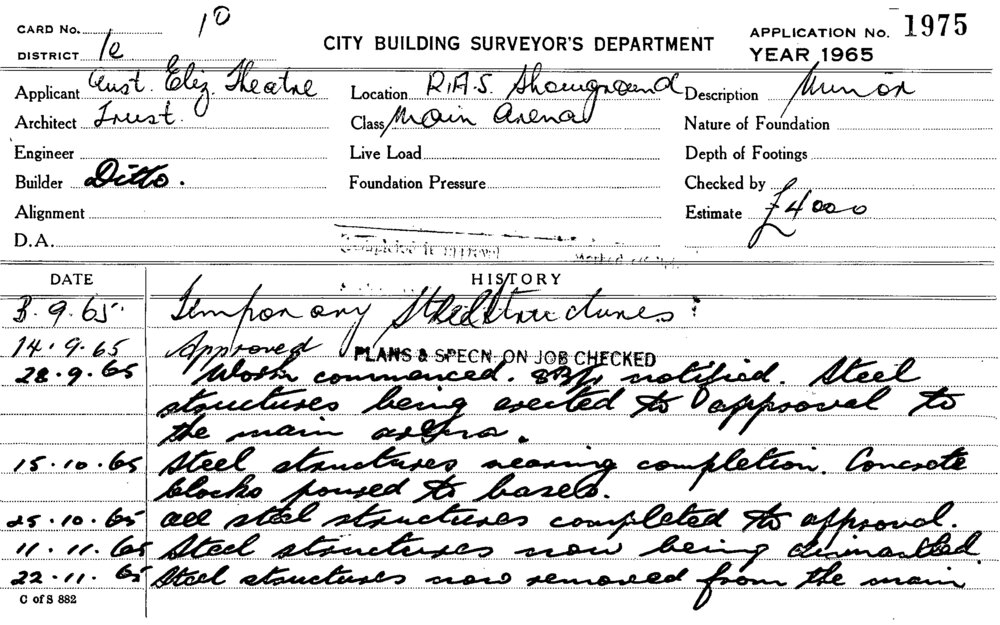 CARD No. 10
DISTRICT 1e
CITY BUILDING SURVEYOR'S DEPARTMENT
APPLICATION No. 1975
YEAR 1965
Applicant Aust. Eliz. Theatre
Architect Trust.
Engineer
Builder Ditto.
Alignment
D.A.
Location R.A.S. Showground
Class Main Arena
Live Load
Foundation Pressure
Description Minor
Nature of Foundation
Depth of Footings
Checked by
Estimate £4000
DATE HISTORY
3.9.65. Temporary Steel Structures:
14.9.65 Approved
PLANS & SPECN. ON JOB CHECKED
28.9.65 Work commenced. notified. Steel
structures being erected to approval to
the main arena.
15.10.65 Steel structures nearing completion. Concrete
blocks poured to bases.
25.10.65 All steel structures completed to approval.
11.11.65 Steel structures now being dismantled
22.11.65 Steel structures now removed from the main
C of S 882